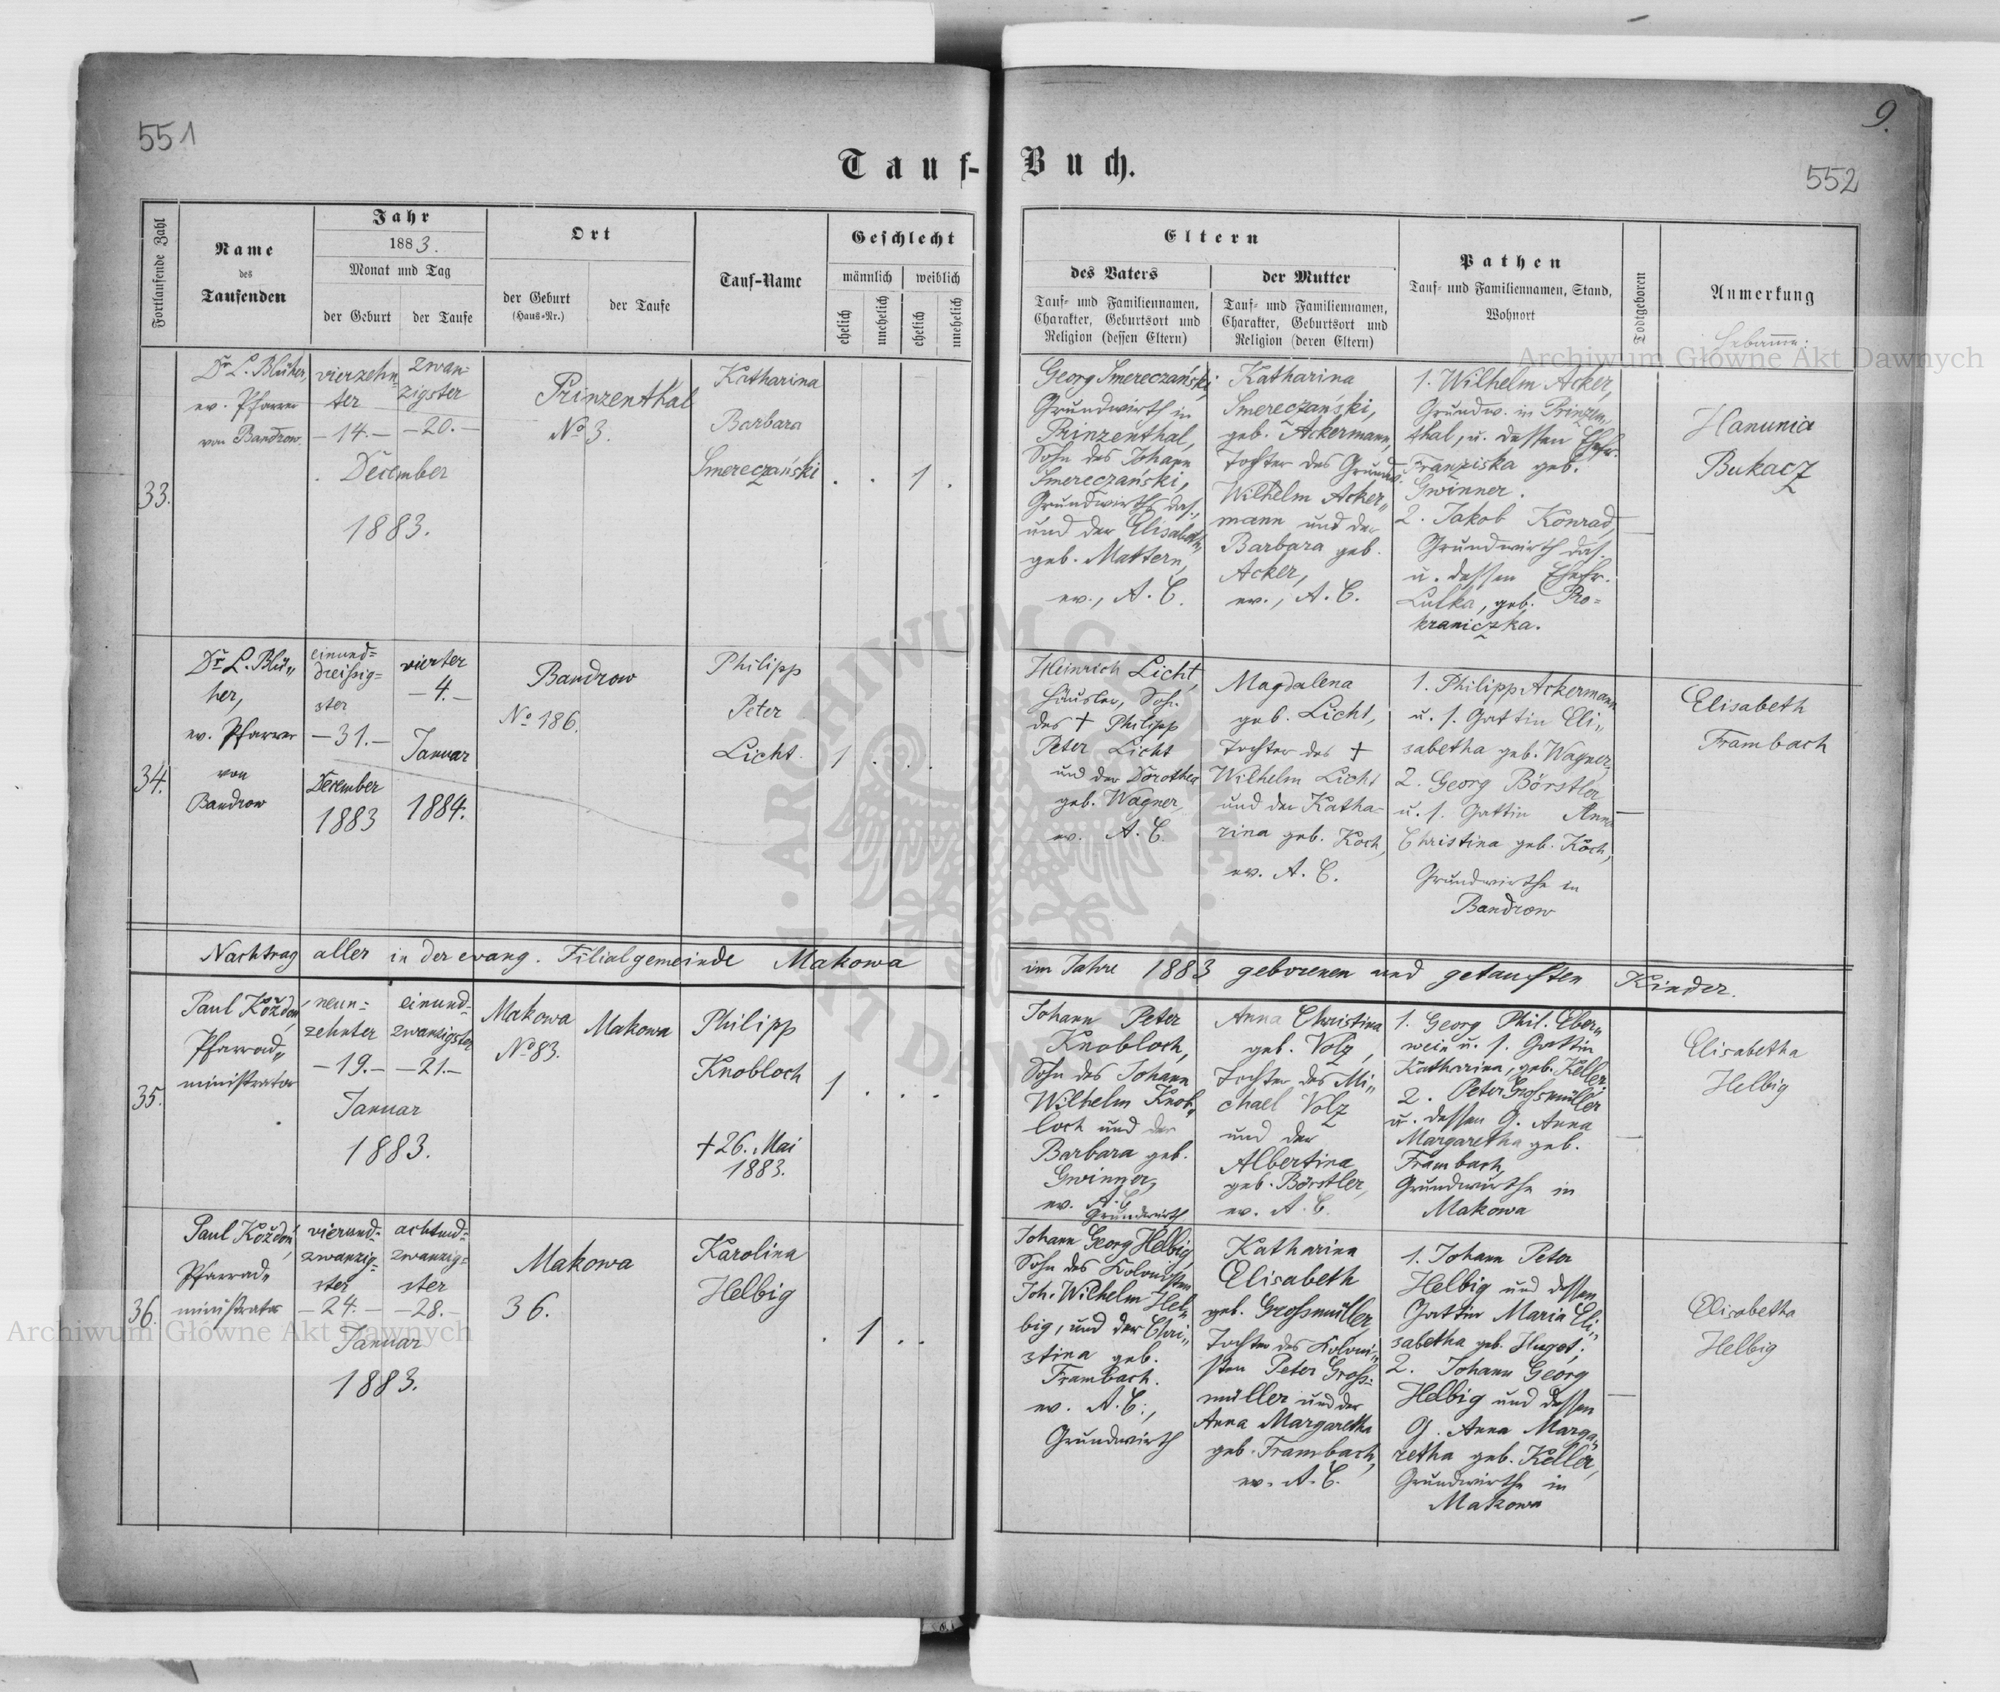 551
9.
552
Tauf-Buch.
Fortlaufende Zahl
Name
des
Taufenden
Jahr
1883.
Monat und Tag
der Geburt
der Taufe
Ort
der Geburt
(Haus-Nr.)
der Taufe
Tauf-Name
Geschlecht
männlich
weiblich
ehelich
unehelich
ehelich
unehelich
Eltern
des Vaters
Tauf- und Familiennamen,
Charakter, Geburtsort und
Religion (dessen Eltern)
der Mutter
Tauf- und Familiennamen,
Charakter, Geburtsort und
Religion (deren Eltern)
Pathen
Tauf- und Familiennamen, Stand,
Wohnort
Todtgeboren
Anmerkung
33.
Dr L. Blüher,
ev. Pfarrer
von Bandrow.
vierzehn-
ter
-14.-
zwan-
zigster
-20.-
December
1883.
Prinzenthal
No 3.
Katharina
Barbara
Smereczański
. . 1 .
Georg Smereczański,
Grundwirth in
Prinzenthal,
Sohn des Johann
Smereczański,
Grundwirths das.,
und der Elisabeth,
geb. Mattern,
ev., A. C.
Katharina
Smereczański,
geb. Ackermann,
Tochter des Grundw.
Wilhelm Acker"
mann und der
Barbara geb.
Acker,
ev., A. C.
1. Wilhelm Acker,
Grundw. in Prinzen"
thal, u. dessen Ehefr.
Franziska geb.
Gwinner.
2. Jakob Konrad,
Grundwirth das.
u. dessen Ehefr.
Lutka, geb. Pro-
kraniczka.
Hebamme:
Hanunia
Bukacz
34.
Dr L. Blü"
her,
ev. Pfarrer
von
Bandrow
einund=
dreißig=
ster
-31.-
December
1883
vierter
-4.-
Januar
1884.
Bandrow
No 186.
Philipp
Peter
Licht.
1 . . .
Heinrich Licht,
Häusler, Sohn
des † Philipp
Peter Licht
und der Dorothea
geb. Wagner,
ev. A. C.
Magdalena
geb. Licht,
Tochter des †
Wilhelm Licht
und der Katha-
rina geb. Koch,
ev. A. C.
1. Philipp Ackermann
u. s. Gattin Eli=
sabetha geb. Wagner,
2. Georg Börstler,
u. s. Gattin Anna
Christina geb. Koch,
Grundwirthe in
Bandrow
Elisabeth
Frambach
Nachtrag aller in der evang. Filialgemeinde Makowa im Jahre 1883 geborenen und getauften Kinder.
35.
Paul Koždoń,
Pfarrad"
ministrator
neun=
zehnter
-19.-
einund=
zwanzigster
-21.-
Januar
1883.
Makowa
No 83.
Makowa
Philipp
Knobloch
† 26. Mai
1883.
1 . . .
Johann Peter
Knobloch,
Sohn des Johann
Wilhelm Knob"
loch und der
Barbara geb.
Gwinner,
ev. A. C.
Grundwirth
Anna Christina
geb. Volz,
Tochter des Mi"
chael Volz
und der
Albertina
geb. Börstler,
ev. A. C.
1. Georg Phil. Eber"
wein u. s. Gattin
Katharina, geb. Keller,
2. Peter Großmüller
u. dessen G. Anna
Margaretha geb.
Frambach,
Grundwirthe in
Makowa
Elisabetha
Helbig
36.
Paul Koždoń,
Pfarrad"
ministrator
vierund=
zwanzig=
ster
-24.-
achtund=
zwanzig=
ster
-28.-
Januar
1883.
Makowa
36.
Karolina
Helbig
. 1 . .
Johann Georg Helbig,
Sohn des Kolonisten
Joh. Wilhelm Hel"
big, und der Chri"
stina geb.
Frambach.
ev. A. C.,
Grundwirth
Katharina
Elisabeth
geb. Großmüller,
Tochter des Koloni"
sten Peter Groß=
müller und der
Anna Margaretha
geb. Frambach,
ev. A. C.
1. Johann Peter
Helbig und dessen
Gattin Maria Eli"
sabetha geb. Huget;
2. Johann Georg
Helbig und dessen
G. Anna Marga"
retha geb. Keller,
Grundwirthe in
Makowa
Elisabetha
Helbig
Archiwum Główne Akt Dawnych
Archiwum Główne Akt Dawnych